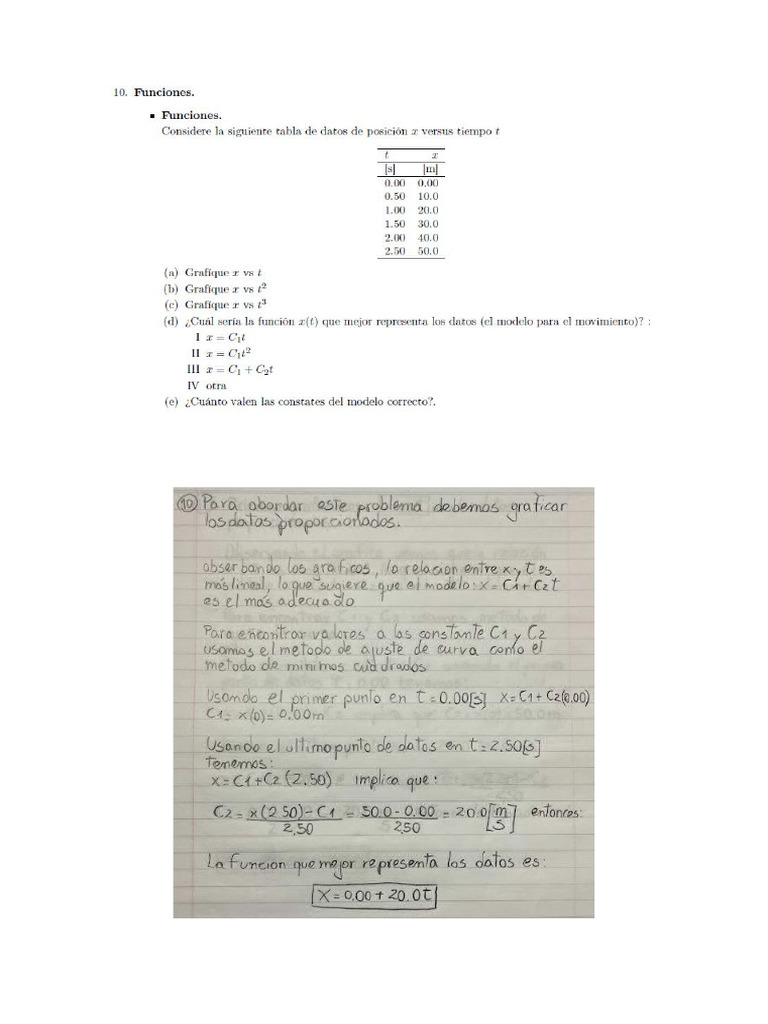 10. Funciones.
▪ Funciones.
Considere la siguiente tabla de datos de posición x versus tiempo t
t x
[s] [m]
0.00 0.00
0.50 10.0
1.00 20.0
1.50 30.0
2.00 40.0
2.50 50.0
(a) Grafique x vs t
(b) Grafique x vs t²
(c) Grafique x vs t³
(d) ¿Cuál sería la función x(t) que mejor representa los datos (el modelo para el movimiento)? :
I x = C₁t
II x = C₁t²
III x = C₁ + C₂t
IV otra
(e) ¿Cuánto valen las constates del modelo correcto?.
10 Para abordar este problema debemos graficar
los datos proporcionados.
obserbando los graficos, la relacion entre x y t es
más lineal, lo que sugiere que el modelo: x = C1 + C2 t
es el más adecuado
Para encontrar valores a las constante C1 y C2
usamos el metodo de ajuste de curva como el
metodo de minimos cuadrados
Usando el primer punto en t = 0.00[s] X = C1 + C2(0.00)
C1 = x(0) = 0.00m
Usando el ultimo punto de datos en t = 2.50[s]
tenemos:
x = C1 + C2 (2.50) implica que:
C2 = x(2.50) - C1 = 50.0 - 0.00 = 20.0 [m] entonces:
2,50 2,50 [s]
La funcion que mejor representa los datos es:
X = 0,00 + 20.0t